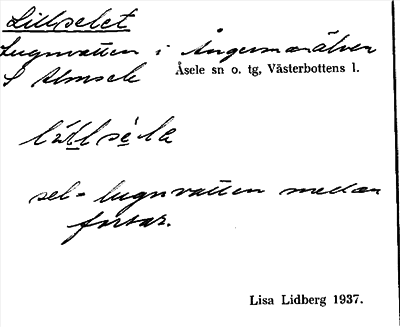 Lillselet
Lugnvatten i Ångermanälven
S Almsele
Åsele sn o. tg, Västerbottens l.
sel = lugnvatten mellan
forsar.
Lisa Lidberg 1937.